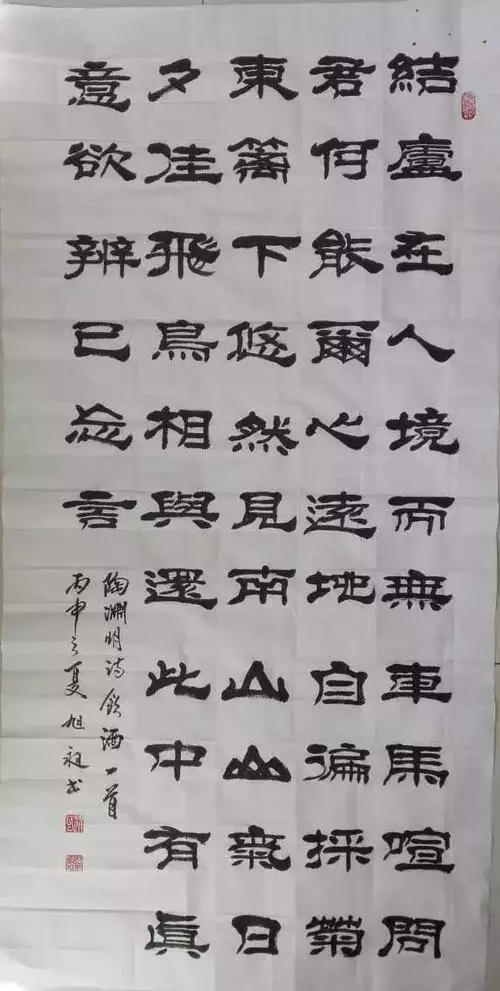 結廬在人境而無車馬喧問
君何能爾心遠地自徧採菊
東籬下悠然見南山山氣日
夕佳飛鳥相與還此中有眞
意欲辨已忘言
陶淵明诗飲酒一首
丙申之夏旭书